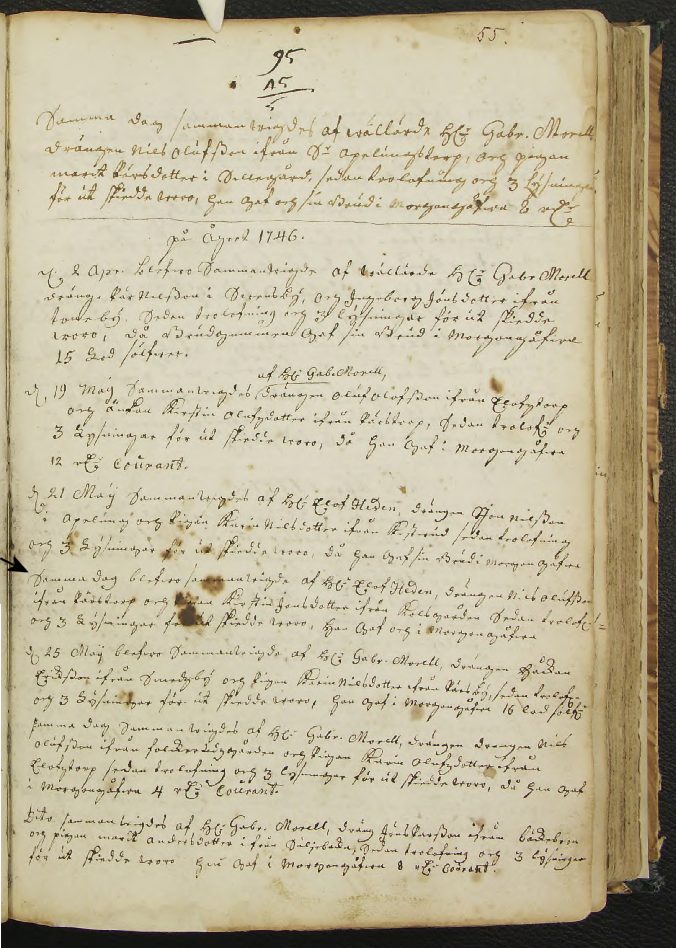 55.
95
15
5
Samma dag sammanwigdes af wällärde H:r Gabr. Morell
drängen Nils Olufsson ifrån Apelungstorp, och pigan
marit Pärsdotter i Sillegård, sedan trolofning och 3 Lysningar
för ut skiedde woro, han gaf och sin Brud i Morgongåfwa 8
på Åhret 1746.
d. 2 Apr. blefwo Sammanwigde af wällärde H:r Gabr Morell
dräng. Pär Nilsson i och Ingeborg Jönsdotter ifrån
Sedan trolofning och 3 lysningar för ut skiedde
woro, då Brudgummen gaf sin Brud i Morgongåfwa
15 Lod sölfwer.
af H:r Gabr Morell,
d. 19 May Sammanwigdes drängen Oluf Olofsson ifrån Elofstorp
och änkan Kierstin Olufsdotter ifrån Pärstorp, Sedan trolof: och
3 Lysningar för ut skiedde woro, då han gaf i Morgongåfwa
12 Courant.
d. 21 May Sammanwigdes af H:r Elof Heden, drängen Jon Nilsson
i Apelung och Pigan Karin Nilsdotter ifrån sedan trolofning
och 3 Lysningar för ut skiedde woro, då han gaf sin Brud i Morgongåfwa
Samma dag blefwo sammanwigde af H:r Elof Heden, drängen Nils Olufsson
ifrån Pärstorp och Kerstin Jonsdotter ifrån Sedan trolof
och 3 Lysningar för ut skiedde woro, han gaf och i Morgongåfwa
d. 25 May blefwo Sammanwigde af H:r Gabr. Morell, drängen Håkan
Eriksson ifrån Smedsby och Pigan Karin Nilsdotter ifrån sedan trolof
och 3 Lysningar för ut skiedde woro, han gaf i Morgongåfwa 16 lod
samma dag Sammanwigdes af H:r Gabr. Morell, drängen drengen Nils
Olufsson ifrån och Pigan Karin Olufsdotter ifrån
Elofstorp sedan trolofning och 3 lysningar för ut skiedde woro, då han gaf
i Morgongåfwa 4 Courant.
Dito sammanwigdes af H:r Gabr. Morell, dräng Jöns Larsson ifrån
och pigan marit Andersdotter ifrån Sedan trolofning och 3 Lysningar
för ut skiedde woro han gaf i Morgongåfwa 8 Courant.